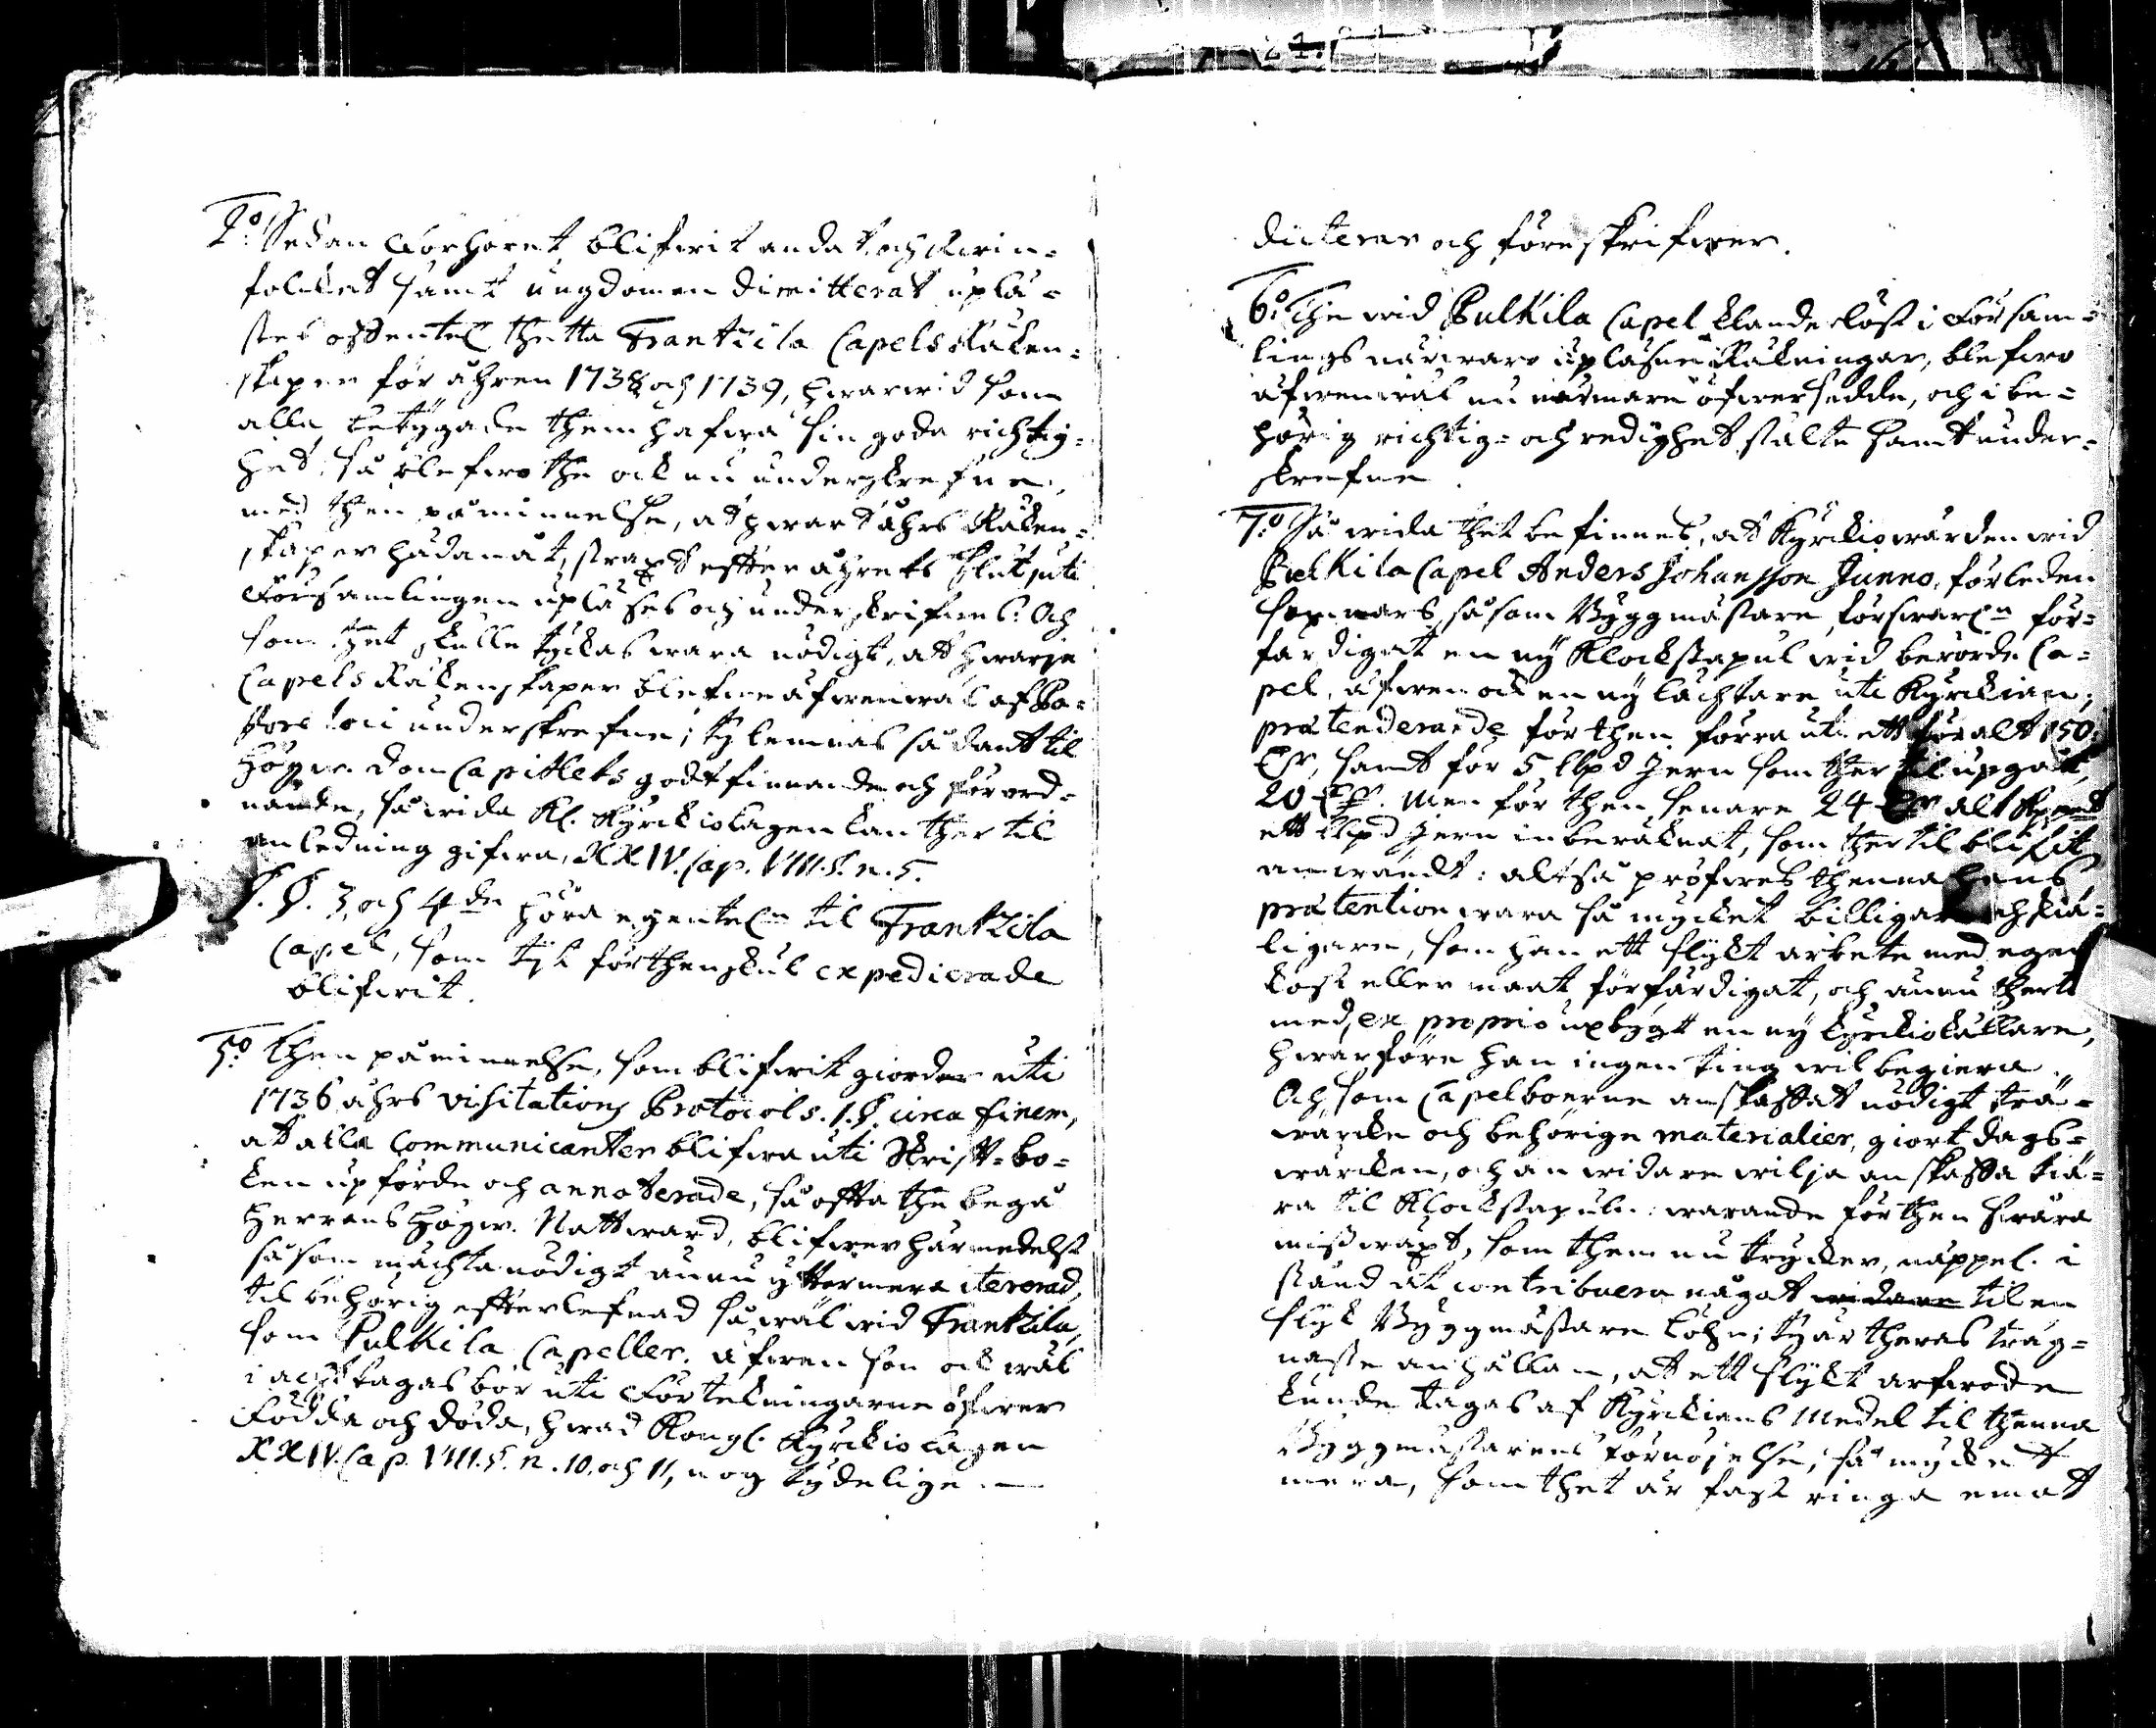 2:o Sedan Förhöret blifwit ändat och Qwin-
folcket samt ungdomen dimitterat uplä-
stes offentel. thetta Frantzila Capels Räken-
skaper för åhren 1738 och 1739, hwarwid som
alla betygade them hafwa sin goda richtig-
het, så blefwo the ock nu underskrefne,
med then påminnelse, at hwart åhrs Räken-
skaper hädanåt, straxt efter åhrets slut, uti
Församlingen upläses och underskrifwes: Och
som thet skulle tyckas wara nödigt, att hwarje
Capels Räkenskaper blefwe äfwenwäl af Pa-
store loci underskrefne; ty lemnas sådant til
Högw. Dom Capitlets godtfinnande och förord-
nande, så wida Kl. Kyrckiolagen kan ther til
anledning gifwa, XXIV. Cap. VIII. §. n. 5.
§. §. 3, och 4de höra egentel:n til Frantzila
Capel, som tyk förthenskul expedierade
blifwit.
5:o Then påminnelse, som blifwit giorder uti
1736 åhrs Visitations Protocols. 1. §. circa finem,
at alla Communicanter blifwa uti Skrift-bo-
ken upförde och annoterade, så offta the begå
Herrans Högw. Nattward, blifwer härmedelst
såsom mächta nödigt ännu yttermera itererad,
til behörig effterlefnad så wäl wid Frantzila,
som Pulkila Capeller. äfwen som ock wäl
i acht tagas bör uti Förtekningarne öfwer
Födda och döda, hwad Kongl. Kyrckiolagen
XXIV. Cap. VIII. §. n. 10. och 11, nog tydelige
dicterar och föreskrifwer.
6:o The wid Pulkila Capel klanderlöst i Försam-
lings närwaro upläsne Räkningar, blefwo
äfwenwäl nu närmare öfwersedde, och i be-
hörig richtig- och redighet stälte samt under-
skrefne.
7:o Så wida thet befinnes, at Kyrckiowärden wid
Pulkila Capel Anders Johansson Junno, förleden
somars, såsom Byggmästare, förswarl:n för-
färdigat en ny Klockstapul wid berörde Ca-
pel, äfwen ock en ny lächtare uti Kyrckian;
prætenderande för then förra uti ett för alt 150
, samt för 5 lbpd Jern som ther til upgått,
20 . Men för then senare 24 alt
ett lispd Jern inberäknat, som ther til blifit
anwändt: altså pröfwes thenna hans
prætention wara så mycket billigare och skiä-
ligare, som han ett slykt arbete med egen
kost eller maat förfärdigat, och ännu ther
med, ex proprio upbygt en ny Kyrckiokällare,
hwarföre han ingen ting wil begiera.
Och som Capelboerne anskaffat nödigt trä-
wärcke och behörige materialier, giort dags-
wärcken, och än widare wilja anskaffa tiä-
ra til Klockstapuln: warande för then swåra
misswäxt, som them nu trycker, näppel. i
stånd at contribuera något widare til en
slyk Byggmästare löhn; ty är theras träg-
naste anhållan, at ett slykt arfwode
kunde tagas af Kyrckians Medel til thenna
Byggmästarens förnöjelse; så mycket
mera, som thet är fast ringa emot